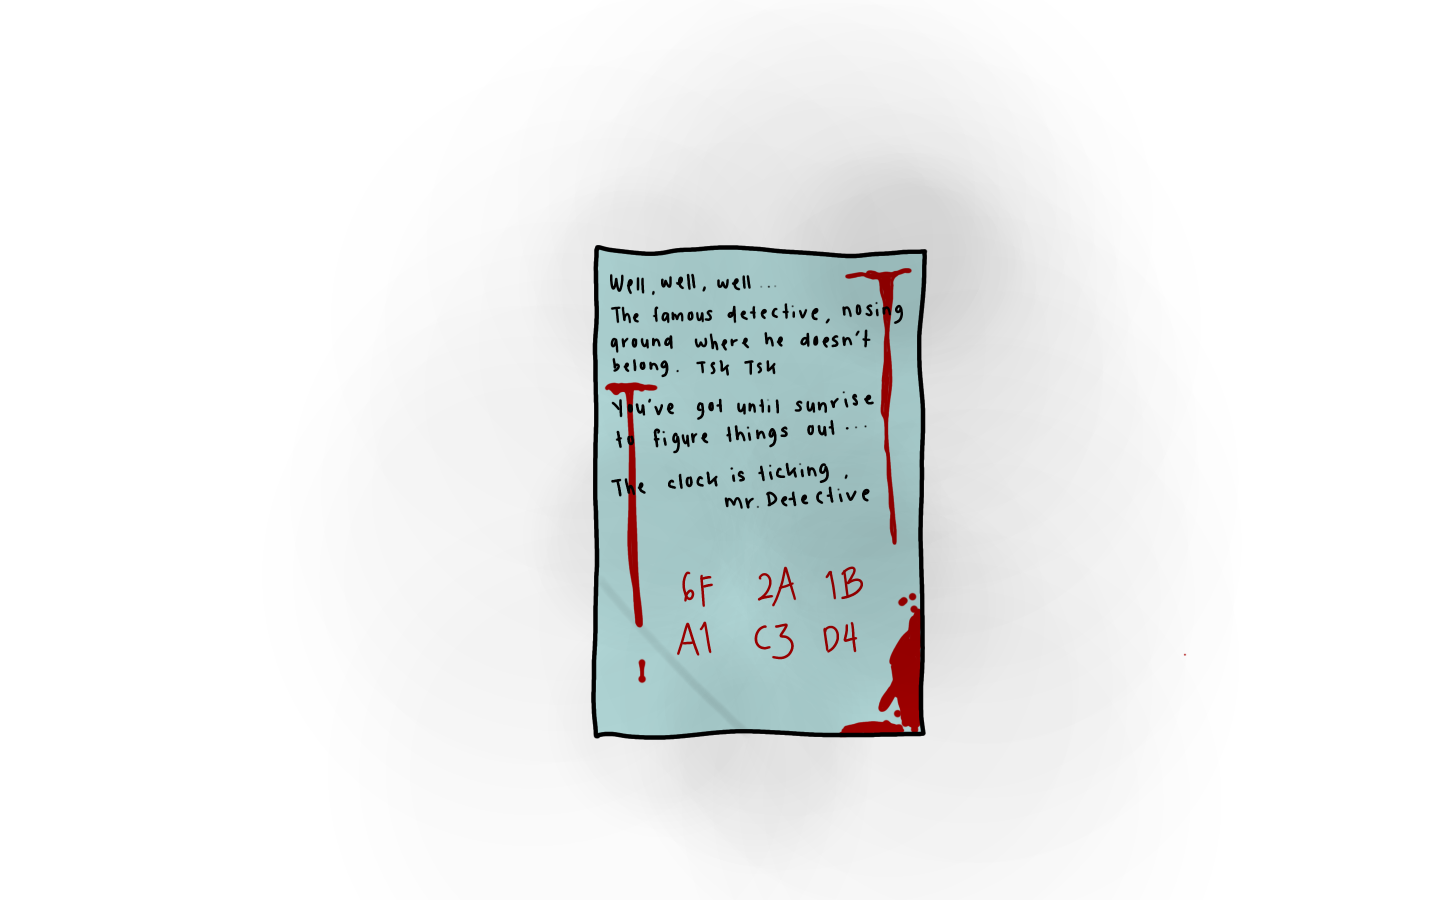 Well, well, well ...
The famous detective, nosing
around where he doesn't
belong. Tsk Tsk
You've got until sunrise
to figure things out ...
The clock is ticking,
mr. Detective
6F 2A 1B
A1 C3 D4